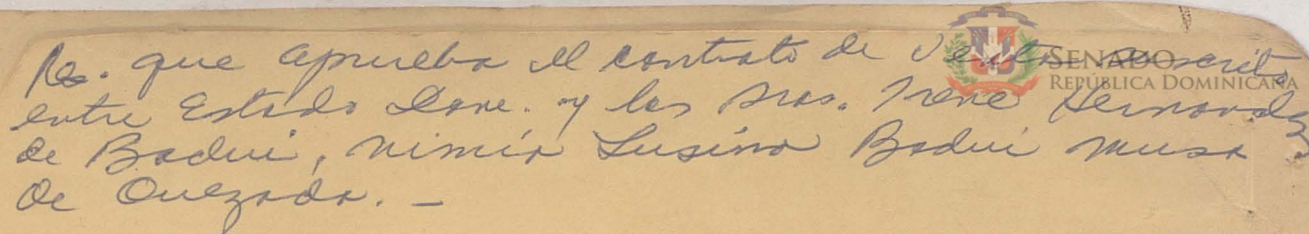 Res. que aprueba el contrato de venta suscrito
entre Estado Dom. y las Sras. Irene Hernandez
de Badui, Nimia Lusina Badui Musa
de Quezada. -
SENADO
REPÚBLICA DOMINICANA